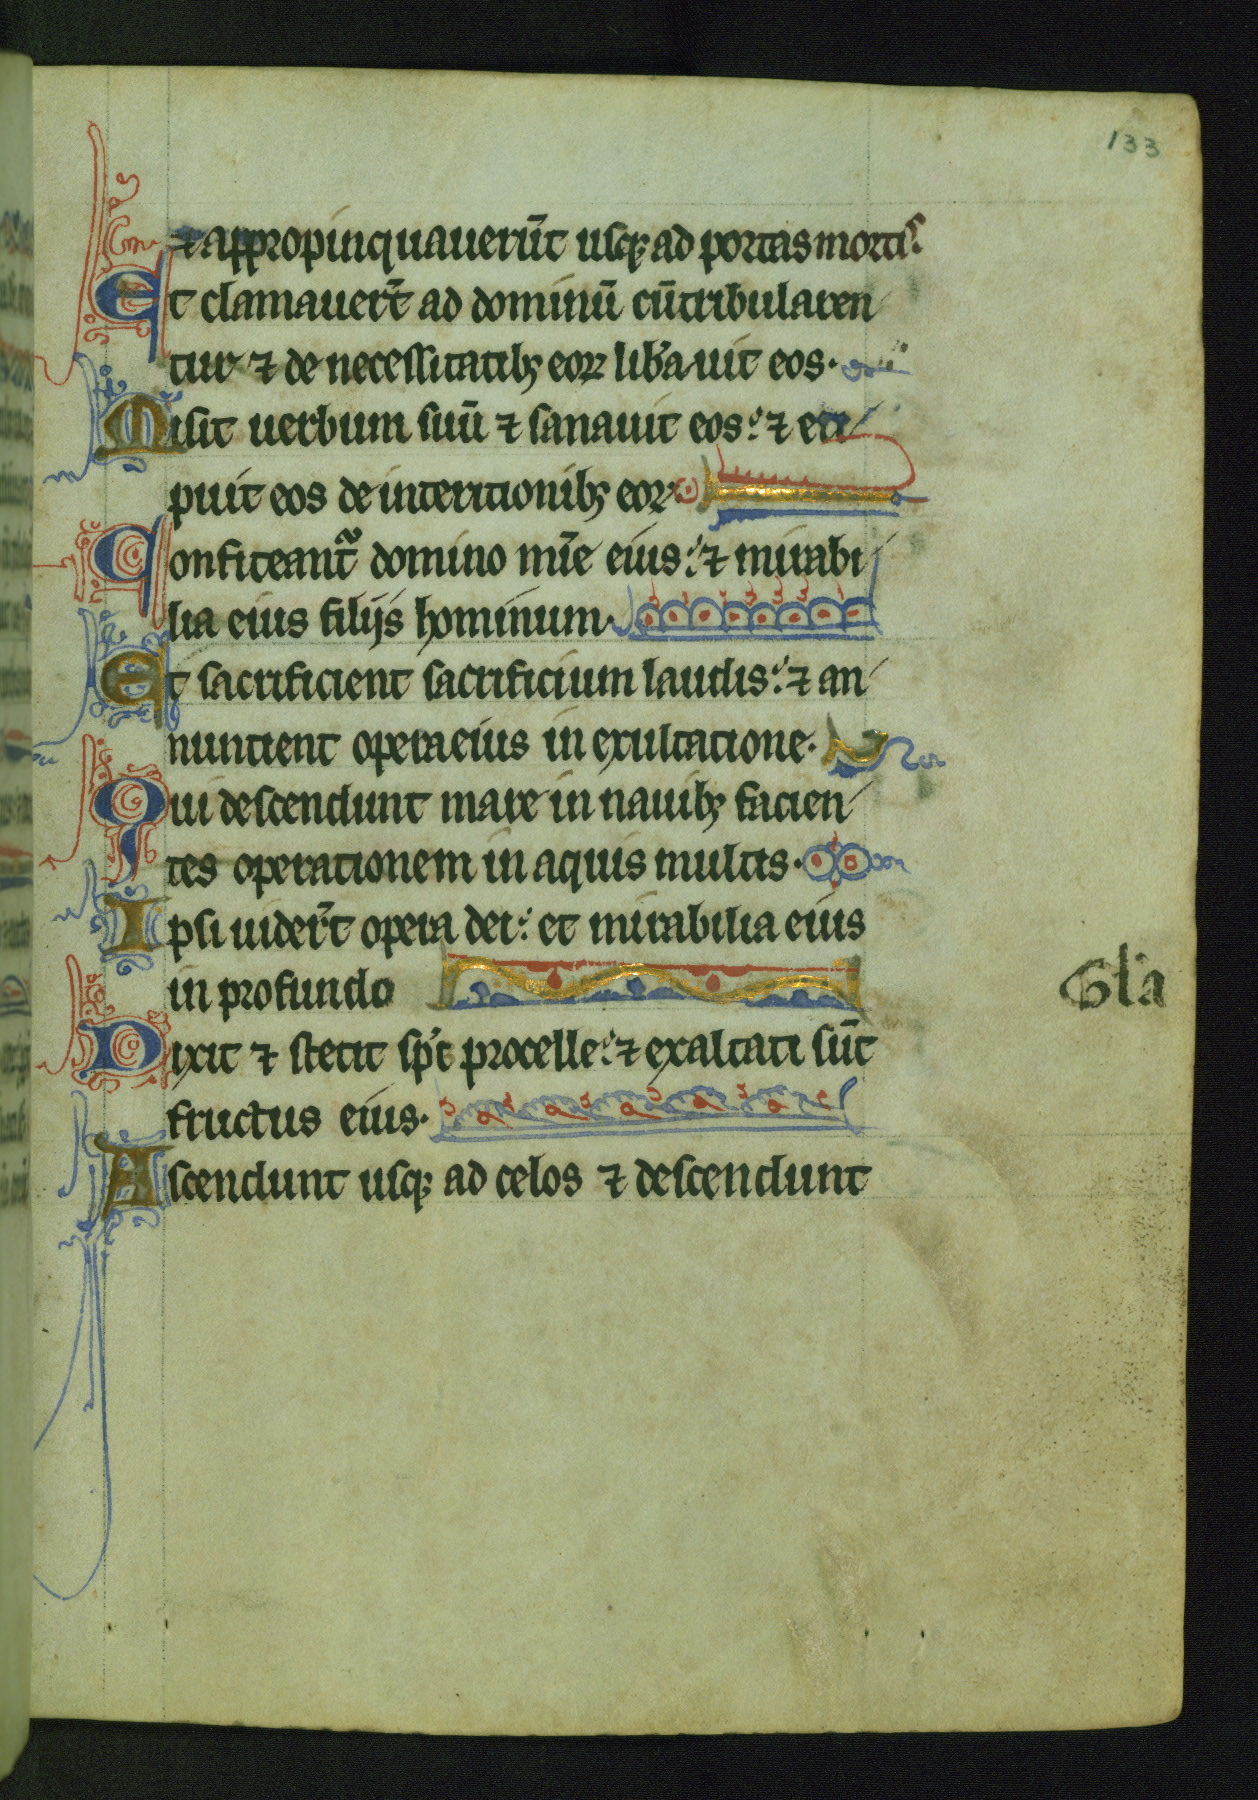 133
⁊ appropinquauerūt usq; ad portas mortis.
Et clamauer̄t ad dominū cū tribularen
tur ⁊ de necessitatib; eoꝝ lib̾auit eos.
Misit uerbum suū ⁊ sanauit eos: ⁊ eri
puit eos de interitionib; eoꝝ
Confiteant᷑ domino mīe eius: ⁊ mirabi
lia eius filijs hominum.
Et sacrificient sacrificium laudis: ⁊ an
nuntient opera eius in exultatione.
Qui descendunt mare in nauib; facien
tes operationem in aquis multis.
Ipsi uider̄t opera dei: et mirabilia eius
in profundo
Gl'a
Dixit ⁊ stetit sp̄c procelle: ⁊ exaltati sūt
fructus eius.
Ascendunt usq; ad celos ⁊ descendunt